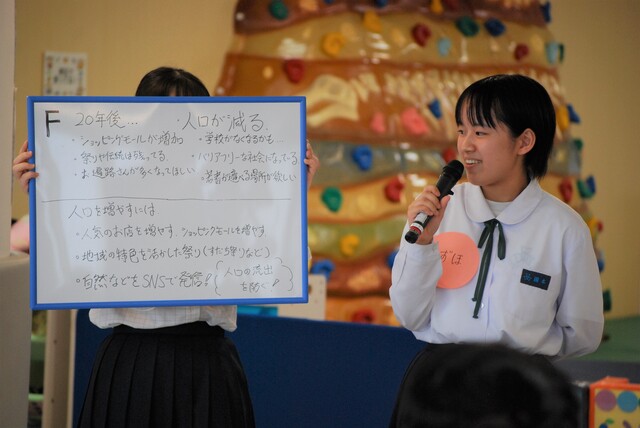 F 20年後... ・人口が減る。
・ショッピングモールが増加 ・学校がなくなるかも
・祭りや伝統は残ってる。 ・バリアフリーな社会になっている
・お遍路さんが多くなってほしい ・若者が遊べる場所が欲しい
人口を増やすには
・人気のお店を増やす、ショッピングモールを増やす
・地域の特色を活かした祭り(すだち狩りなど)
・自然などをSNSで発信! 人口の流出
を防ぐ!
ずほ